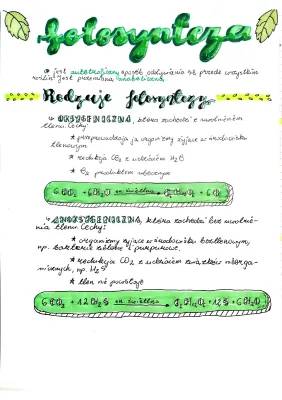 fotosynteza
• jest autotroficzny sposób odżywiania się przede wszystkim
roślin jest przemianą anaboliczną.
Rodzaje fotosyntezy
↳ OKSYGENICZNA, która zachodzi z uwolnieniem
tlenu. Cechy:
* przeprowadzają ją organizmy żyjące w środowisku
tlenowym
* redukcja CO₂ z udziałem H₂O
* O₂ produktem ubocznym
6 CO₂ + 6H₂O en. świetlna → + 6 O₂
↳ ANOKSYGENICZNA, która zachodzi bez uwolnie-
nia tlenu. Cechy:
* organizmy żyjące w środowisku beztlenowym,
np. bakterie zielone i purpurowe,
* redukcja CO₂ z udziałem związków nieorga-
nicznych, np. H₂S
* tlen nie powstaje
6 CO₂ + 12 H₂S en. świetlna → C₆H₁₂O₆ + 12 S + 6 H₂O